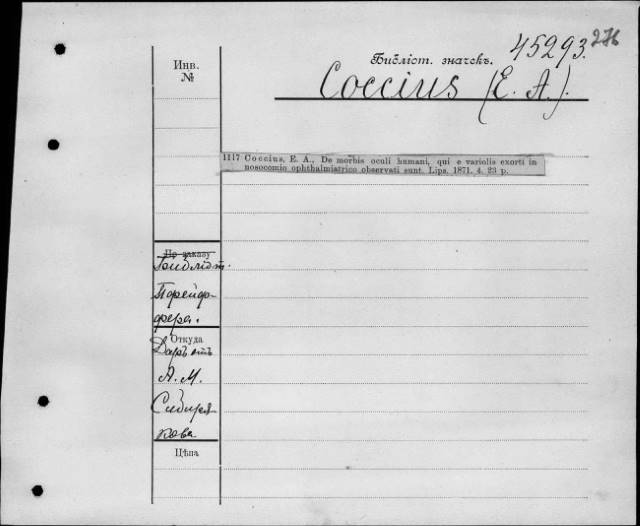 45293.
276
Библіот. значекъ.
Инв.
№
Coccius (E. A.).
1117 Coccius, E. A., De morbis oculi humani, qui e variolis exorti in
nosocomio ophthalmiatrico observati sunt. Lips. 1871. 4. 23 p.
По заказу
Библіот.
Откуда
Даръ отъ
А. М.
Сибиря-
кова
Цѣна